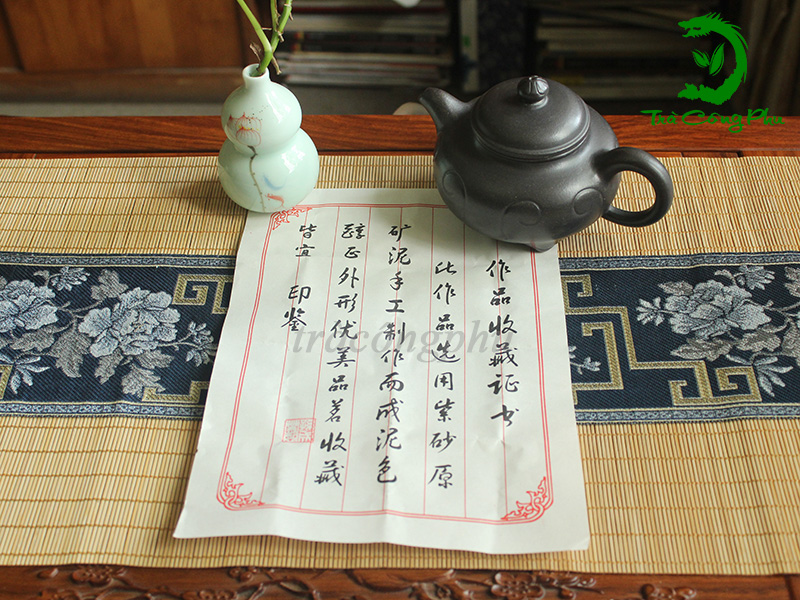 作品收藏证书
此作品选用紫砂原
矿泥手工制作而成泥色
醇正外形优美品茗收藏
皆宜 印鉴
Trà Công Phu
tracongphu